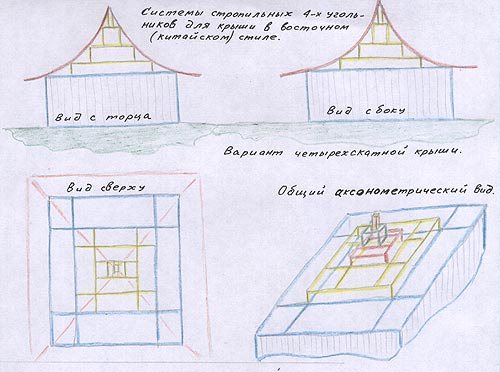 Системы стропильных 4-х уголь-
ников для крыши в восточном
(китайском) стиле.
Вид с торца
Вид сбоку
Вариант четырехскатной крыши.
Вид сверху
Общий аксонометрический вид.